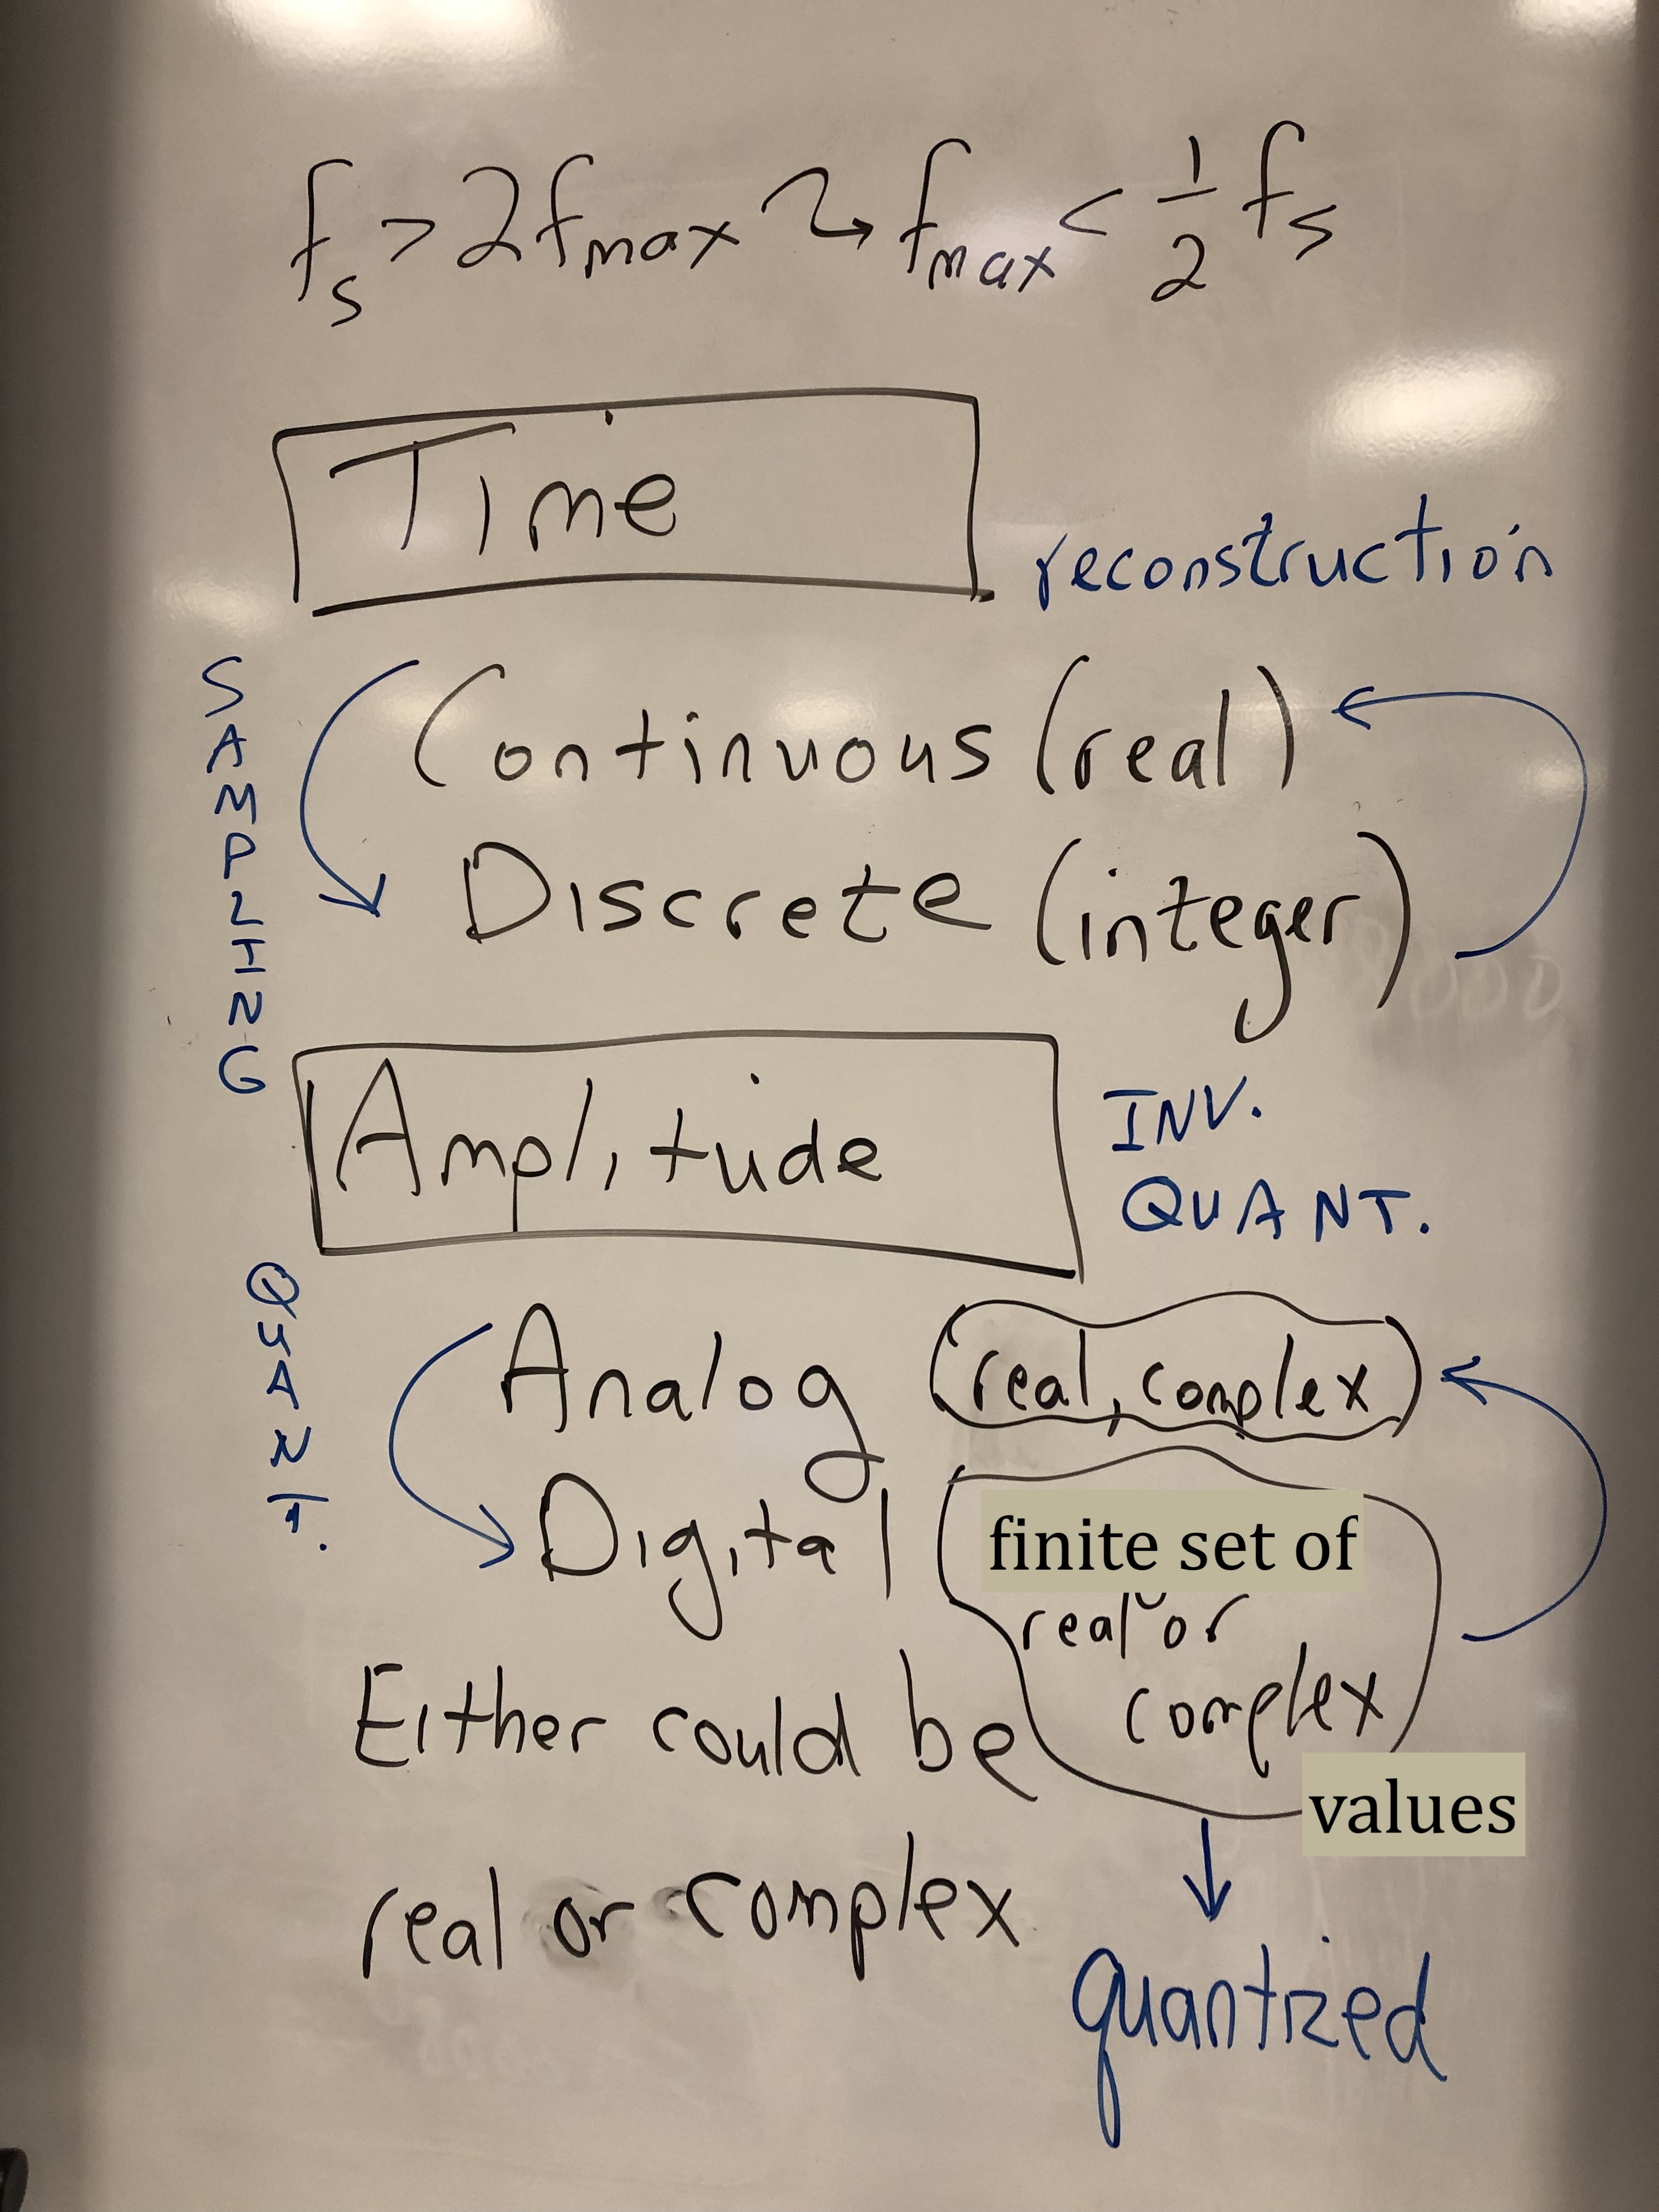 f_s > 2 f_max ↝ f_max < 1/2 f_s
Time
reconstruction
SAMPLING
Continuous (real)
Discrete (integer)
Amplitude
INV.
QUANT.
QUANT.
Analog (real, complex)
Digital
finite set of
real or
complex
values
Either could be
real or complex
quantized